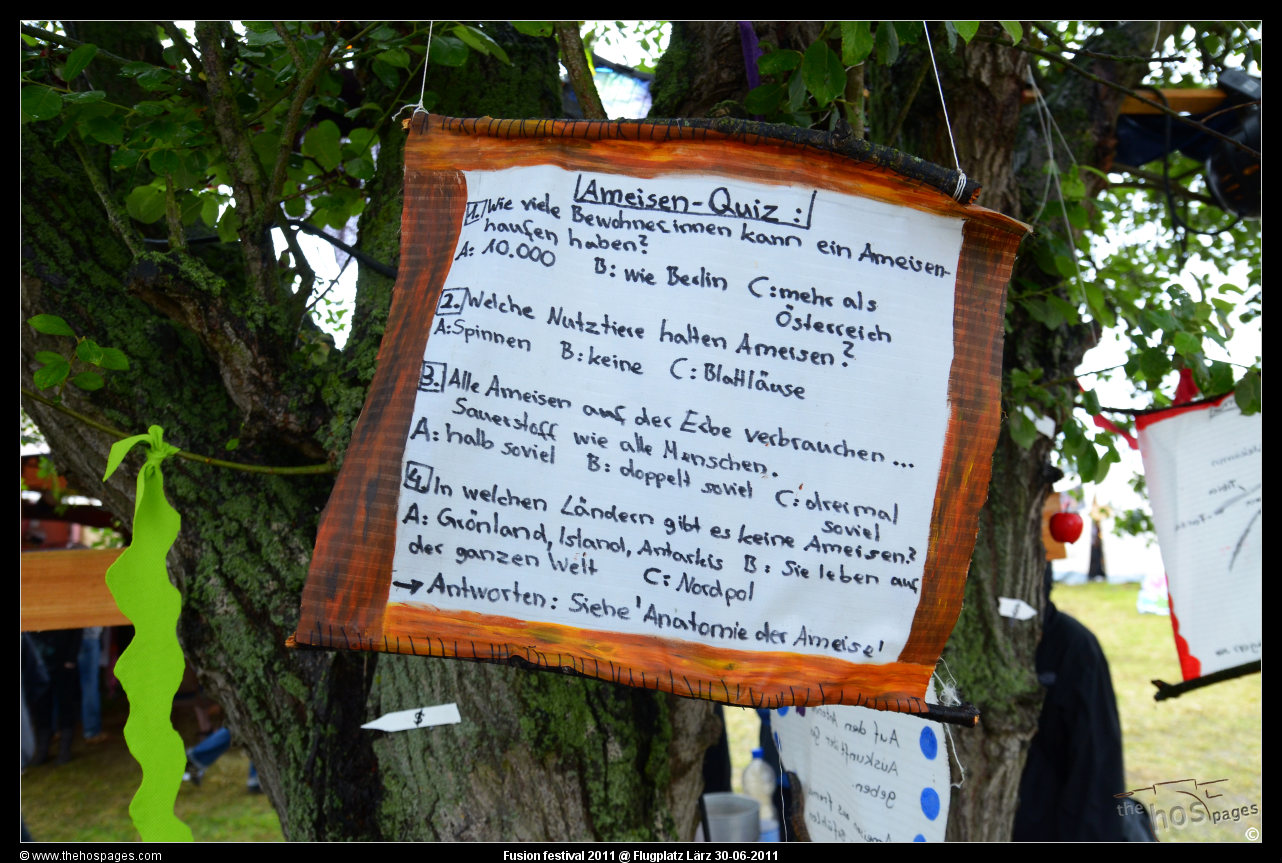 Ameisen-Quiz:
1. Wie viele Bewohner:innen kann ein Ameisen-
haufen haben?
A: 10.000 B: wie Berlin C: mehr als
Österreich
2. Welche Nutztiere halten Ameisen?
A: Spinnen B: keine C: Blattläuse
3. Alle Ameisen auf der Erde verbrauchen ...
Sauerstoff wie alle Menschen.
A: halb soviel B: doppelt soviel C: dreimal
soviel
4. In welchen Ländern gibt es keine Ameisen?
A: Grönland, Island, Antarkis B: Sie leben auf
der ganzen Welt C: Nordpol
→ Antworten: Siehe 'Anatomie der Ameise'
$
Auf den
Auskunft
geben.
the hos pages
©
© www.thehospages.com
Fusion festival 2011 @ Flugplatz Lärz 30-06-2011